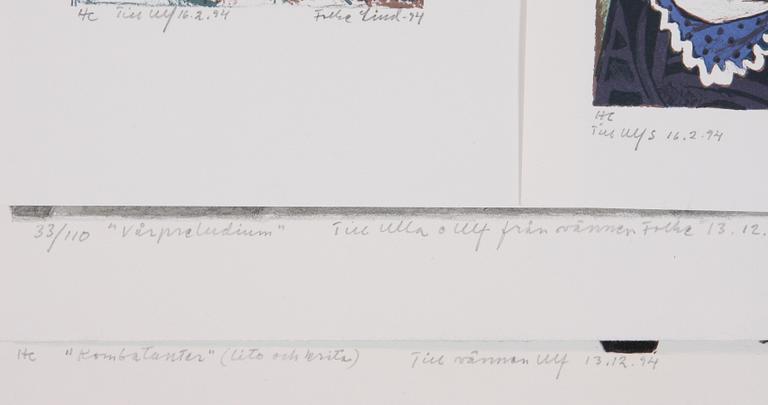 HC Till Ulf 16.2.94 Folke Lind -94
HC
Till Ulf S 16.2.94
33/110 "Vårpreludium" Till Ulla o Ulf från vännen Folke 13.12.
HC "Kombatanter" (lito och krita) Till vännen Ulf 13.12.94